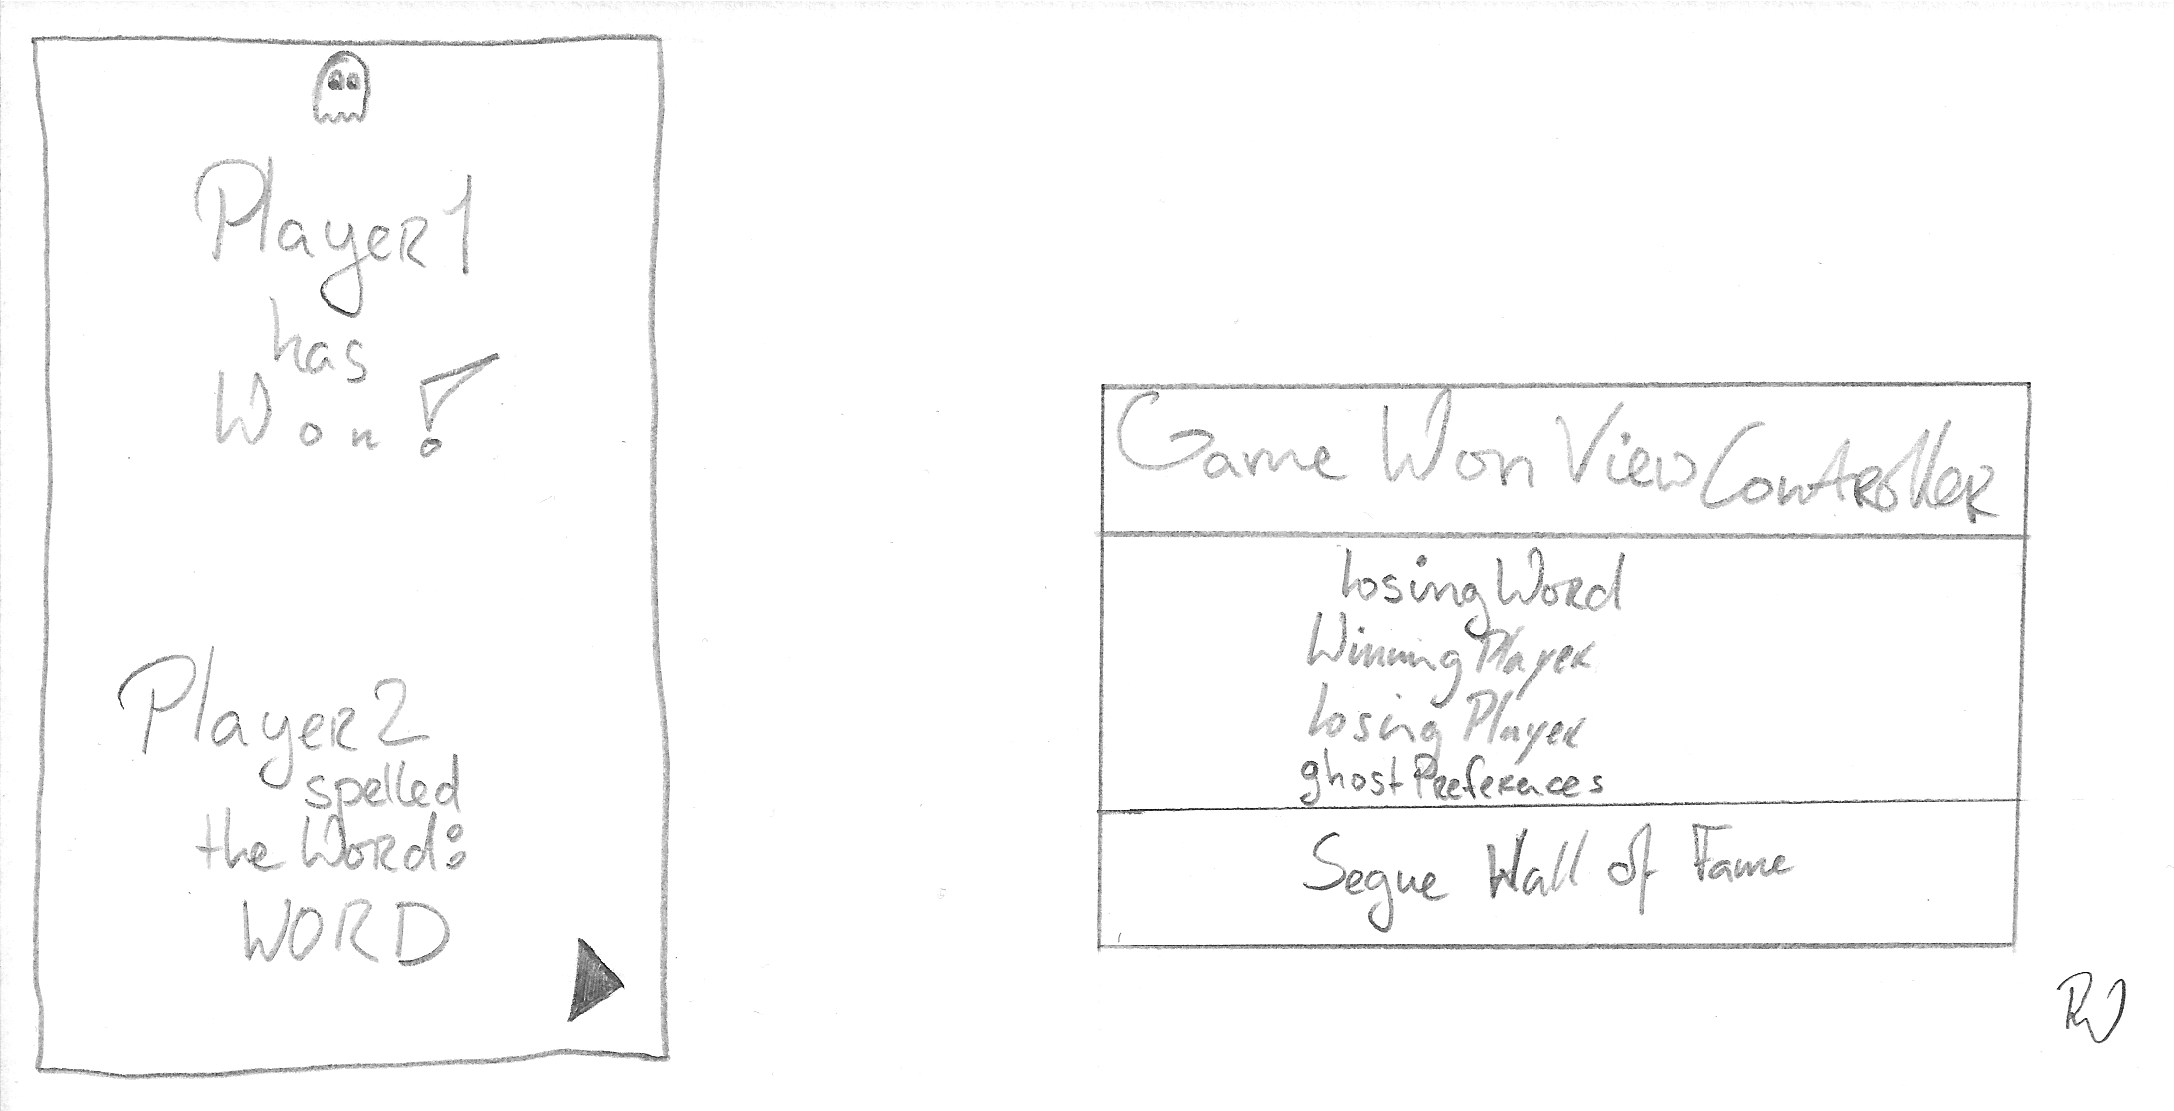 Player1
has
Won!
Player2
spelled
the Word:
WORD
Game Won ViewController
losingWord
WinningPlayer
losingPlayer
ghostPreferences
Segue Wall of Fame